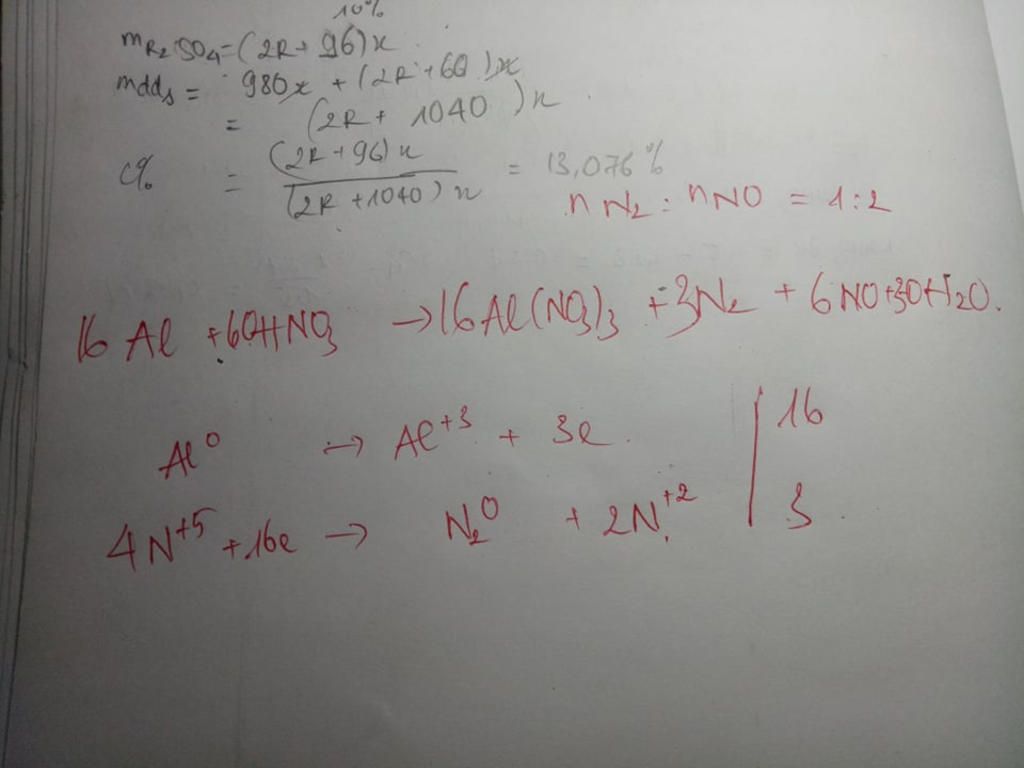 10%
mR₂SO₄ = (2R + 96)x
mdds = 980x + (2R + 60)x
= (2R + 1040)x
C% = (2R + 96)x / (2R + 1040)x = 13,076%
nN₂ : nNO = 1:2
16Al + 60HNO₃ → 16Al(NO₃)₃ + 3N₂ + 6NO + 30H₂O.
Al⁰ → Al⁺³ + 3e. | 16
4N⁺⁵ + 16e → N₂⁰ + 2N⁺² | 3